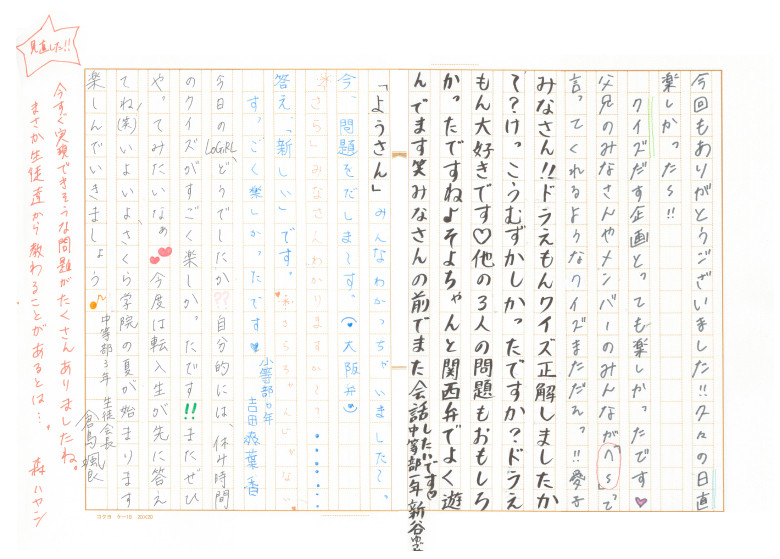 今回もありがとうございました!!久々の日直
楽しかった〜!!
クイズだす企画とっても楽しかったです
父兄のみなさんやメンバーのみんなが「へ〜」って
言ってくれるようなクイズまただれっ!!愛子
みなさん!!ドラえもんクイズ正解しましたか
て?けっこうむずかしかったですか?ドラえ
もん大好きです♡他の3人の問題もおもしろ
かったですね♪そよちゃんと関西弁でよく遊
んでます笑みなさんの前でまた会話したいです
中等部一年 新谷
「ようさん」みんなわかっちゃいました〜。
今、問題をだしま〜す。(大阪弁)
「さら」みなさんわかりますか〜?
答え、「新しい」です。
す、ごく楽しかったです
小等部6年
吉田
今日のLoGiRLどうでしたか??自分的には、休み時間
のクイズがすごく楽しか。たです!!またぜひ
や。てみたいなぁ 今度は転入生が先に答え
てね(笑)いよいよさくら学院の夏が始まります
楽しんでいきましょう
中等部3年 生徒会長
倉島颯良
見直した!!
今すぐ実験できそうな問題がたくさんありましたね。
まさか生徒達から教わることがあるとは…。
森ハヤシ
コクヨ ケ-10 20×20